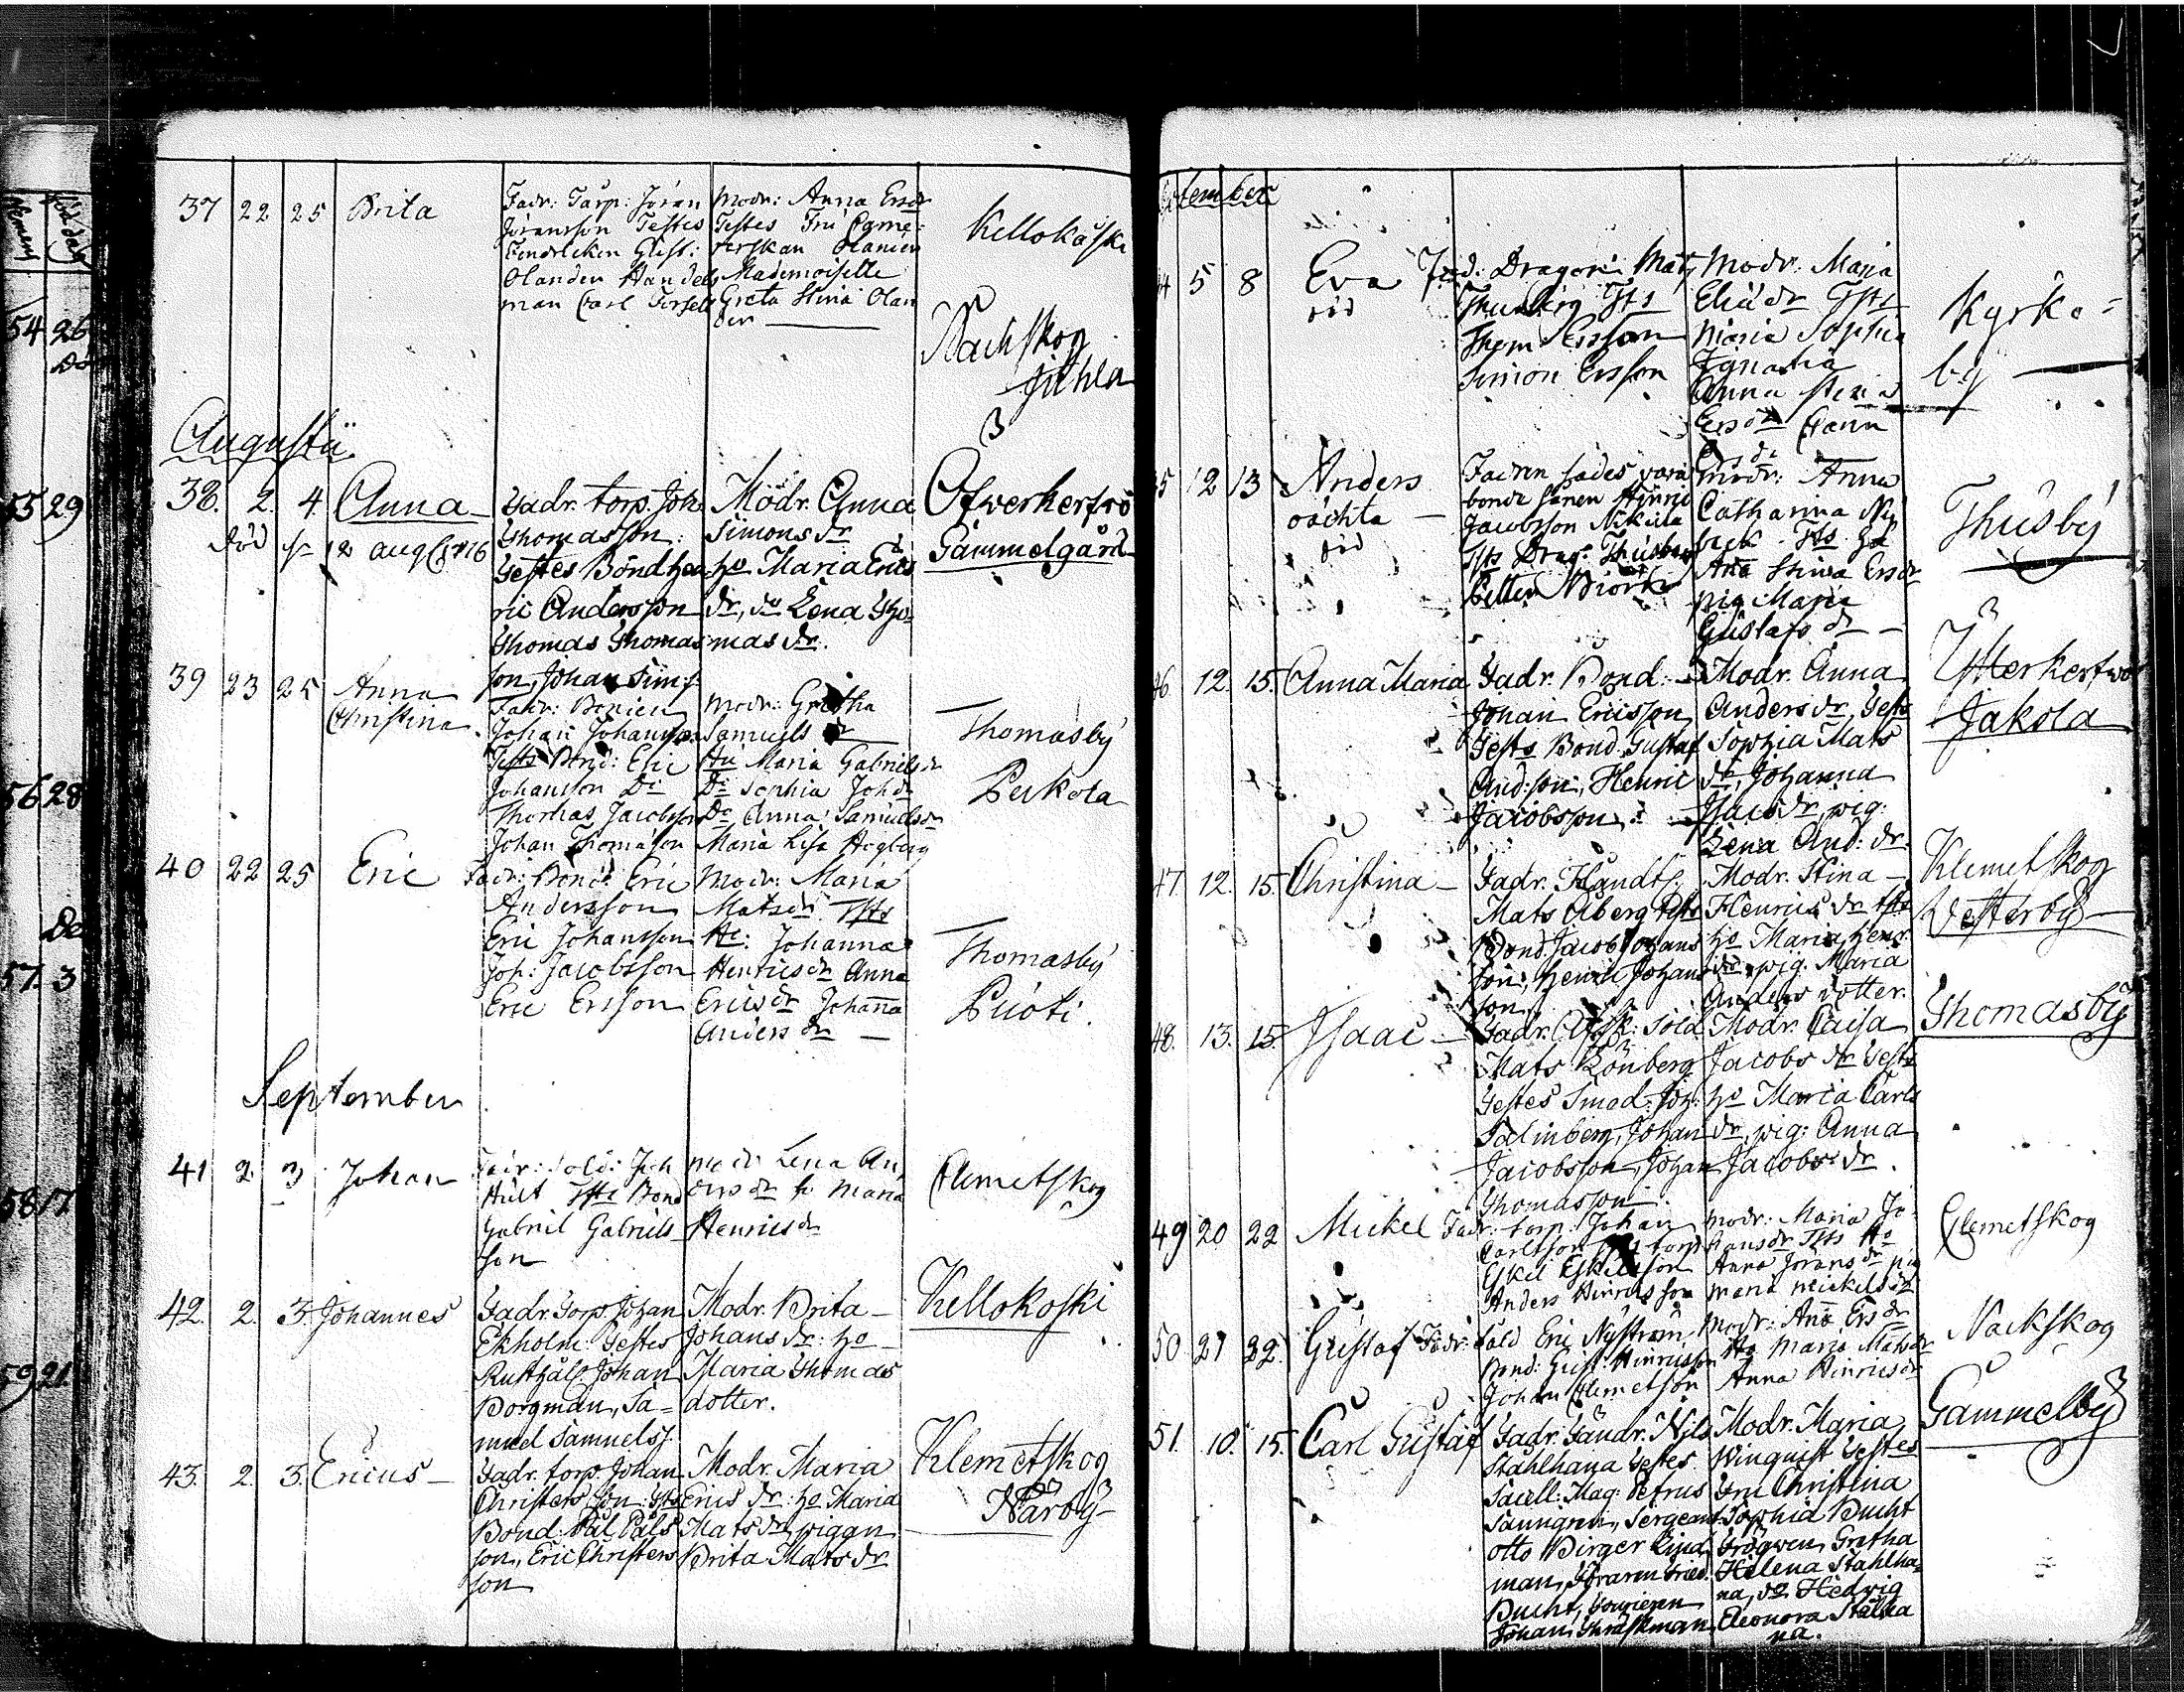 37 22 25 Brita
Fadr: Tårp: Jöran
Jöransson Testes
Fendricken Gust:
Olander Handels
man Carl Forsell
Modr: Anna Ersdr
Testes Fru
Mademoiselle
Greta Stina Olan
der
Kellokåski
Nackskog
Augusti
38. 2. 4. Anna
död d. 12 aug
Fadr. torp. Joh.
Thomasson:
Testes Bond Hen
ric Andersson
Thomas Thomas
son, Johan Sims.
Modr. Anna
Simons dr
ho Maria Erics
dr, do Lena Tho
mas dr.
Ofverkertwo
Gammelgård
39 23 25 Anna
Christina
Fadr: Bonden
Johan Johansson
Tests Bond: Eric
Johansson Do
Thomas Jacobsson
Johan Thomasson
Modr: Gretha
Samuels dr
Hu Maria Gabrielsdr
Do Sophia Joh dr
Do Anna Samuelsdr
Maria Lisa Hogberg
Thomasby
Perkola
40 22 25 Eric
Fadr: Bond Eric
Andersson
Eric Johansson
Joh: Jacobsson
Eric Ersson
Modr: Maria
Matsdr Tsts
Hu: Johanna
Henricsdr Anna
Ericsdr Johana
Anders dr
Thomasby
Puoti
September
41 2 3 Johan
Fadr: Sold: Joh
Hult Tsts Bond
Gabriel Gabriels
son
Modr Lena An
ders dr h: Maria
Henricsdr
Clemetskog
42. 2. 3. Johannes
Fadr. Torp. Johan
Ekholm: Testes
Rusthåls. Johan
Borgman, Sa=
muel Samuels.
Modr. Brita
Johans dr: ho
Maria Thomas
dotter.
Kellokoski
43. 2. 3. Ericus
Fadr. torp. Johan
Christers son: Tsts
Bond. Pål Påls
son, Eric Christers
son
Modr. Maria
Erics dr: ho Maria
Mats dr, pigan
Brita Mats dr
Klemetskog
Närby
September
44 5 8 Eva
död
Fad: Dragon Mats
Thusberg Tsts
Thom Ersson
Simon Ersson
Modr: Maria
Elia dr Tsts
Maria Sophia
Ignatia
Anna Stina
Ersdr
Kyrko=
by
45 12 13 Anders
oächta
död
Fadren sades vara
bonde sonen Hinric
Jacobsson Nikula
Tsts Drag: Thusberg
Petter Biörk
Modr: Anna
Catharina Ny
beck Tsts
Ana Stina Ersdr
pig Maria
Gustafs dr
Thusby
46 12. 15. Anna Maria
Fadr. Bond:
Johan Ericsson
Tests Bond. Gustaf
And:son, Henric
Jacobsson.
Modr. Anna
Anders dr Tests
Sophia Mats
dr, Johanna
Isacs dr, pig:
Lena And: dr.
Ytterkertwo
Jakola
47. 12. 15. Christina
Fadr. Handts.
Mats Åberg Tests
Bond. Jacob Johans
son, Henric Johans
son
Modr. Stina
Henrics dr Tsts
ho Maria Henr:
dr, pig. Maria
Anders dotter.
Klemetskog
Westerby
48. 13. 15. Isaac
Fadr. Afsk: Sold
Mats Rönberg
Testes Smed: Joh:
Palmberg, Johan
Jacobsson, Johan
Thomasson
Modr. Caisa
Jacobs dr Tests
ho Maria Carls
dr, pig: Anna
Jacobs dr.
Thomasby
49 20 22 Mickel
Fadr: torp: Johan
Carlsson Tsts torp
Eskel Eskelsson
Anders Hinricsson
Modr: Maria Jo
hansdr Tsts Ho
Anna Jörans dr pig
Maria Mickels dr
Clemetskog
50 21 22. Gustaf
Fadr: Sold Eric Nyström
Bond: Gust: Hinricsson
Johan Clemetson
Modr: Ana Ers dr
Ho Maria Matsdr
Anna Hinricsdr
Nackskog
51. 10. 15. Carl Gustaf
Fadr. Fändr. Nils
Stahlhana Testes
Sacell: Mag: Petrus
Sanngren, Sergeant
Otto Birger Lind
man, Fouriren
Johan
Modr. Maria
Winquist Testes
Fru Christina
Sophia Bucht
Fröqwen Gretha
Helena Stahlha=
na, do Hedvig
Eleonora Stålha
na.
Gammelby
54 26
55 29
56 28
57. 3
58 17
59 21